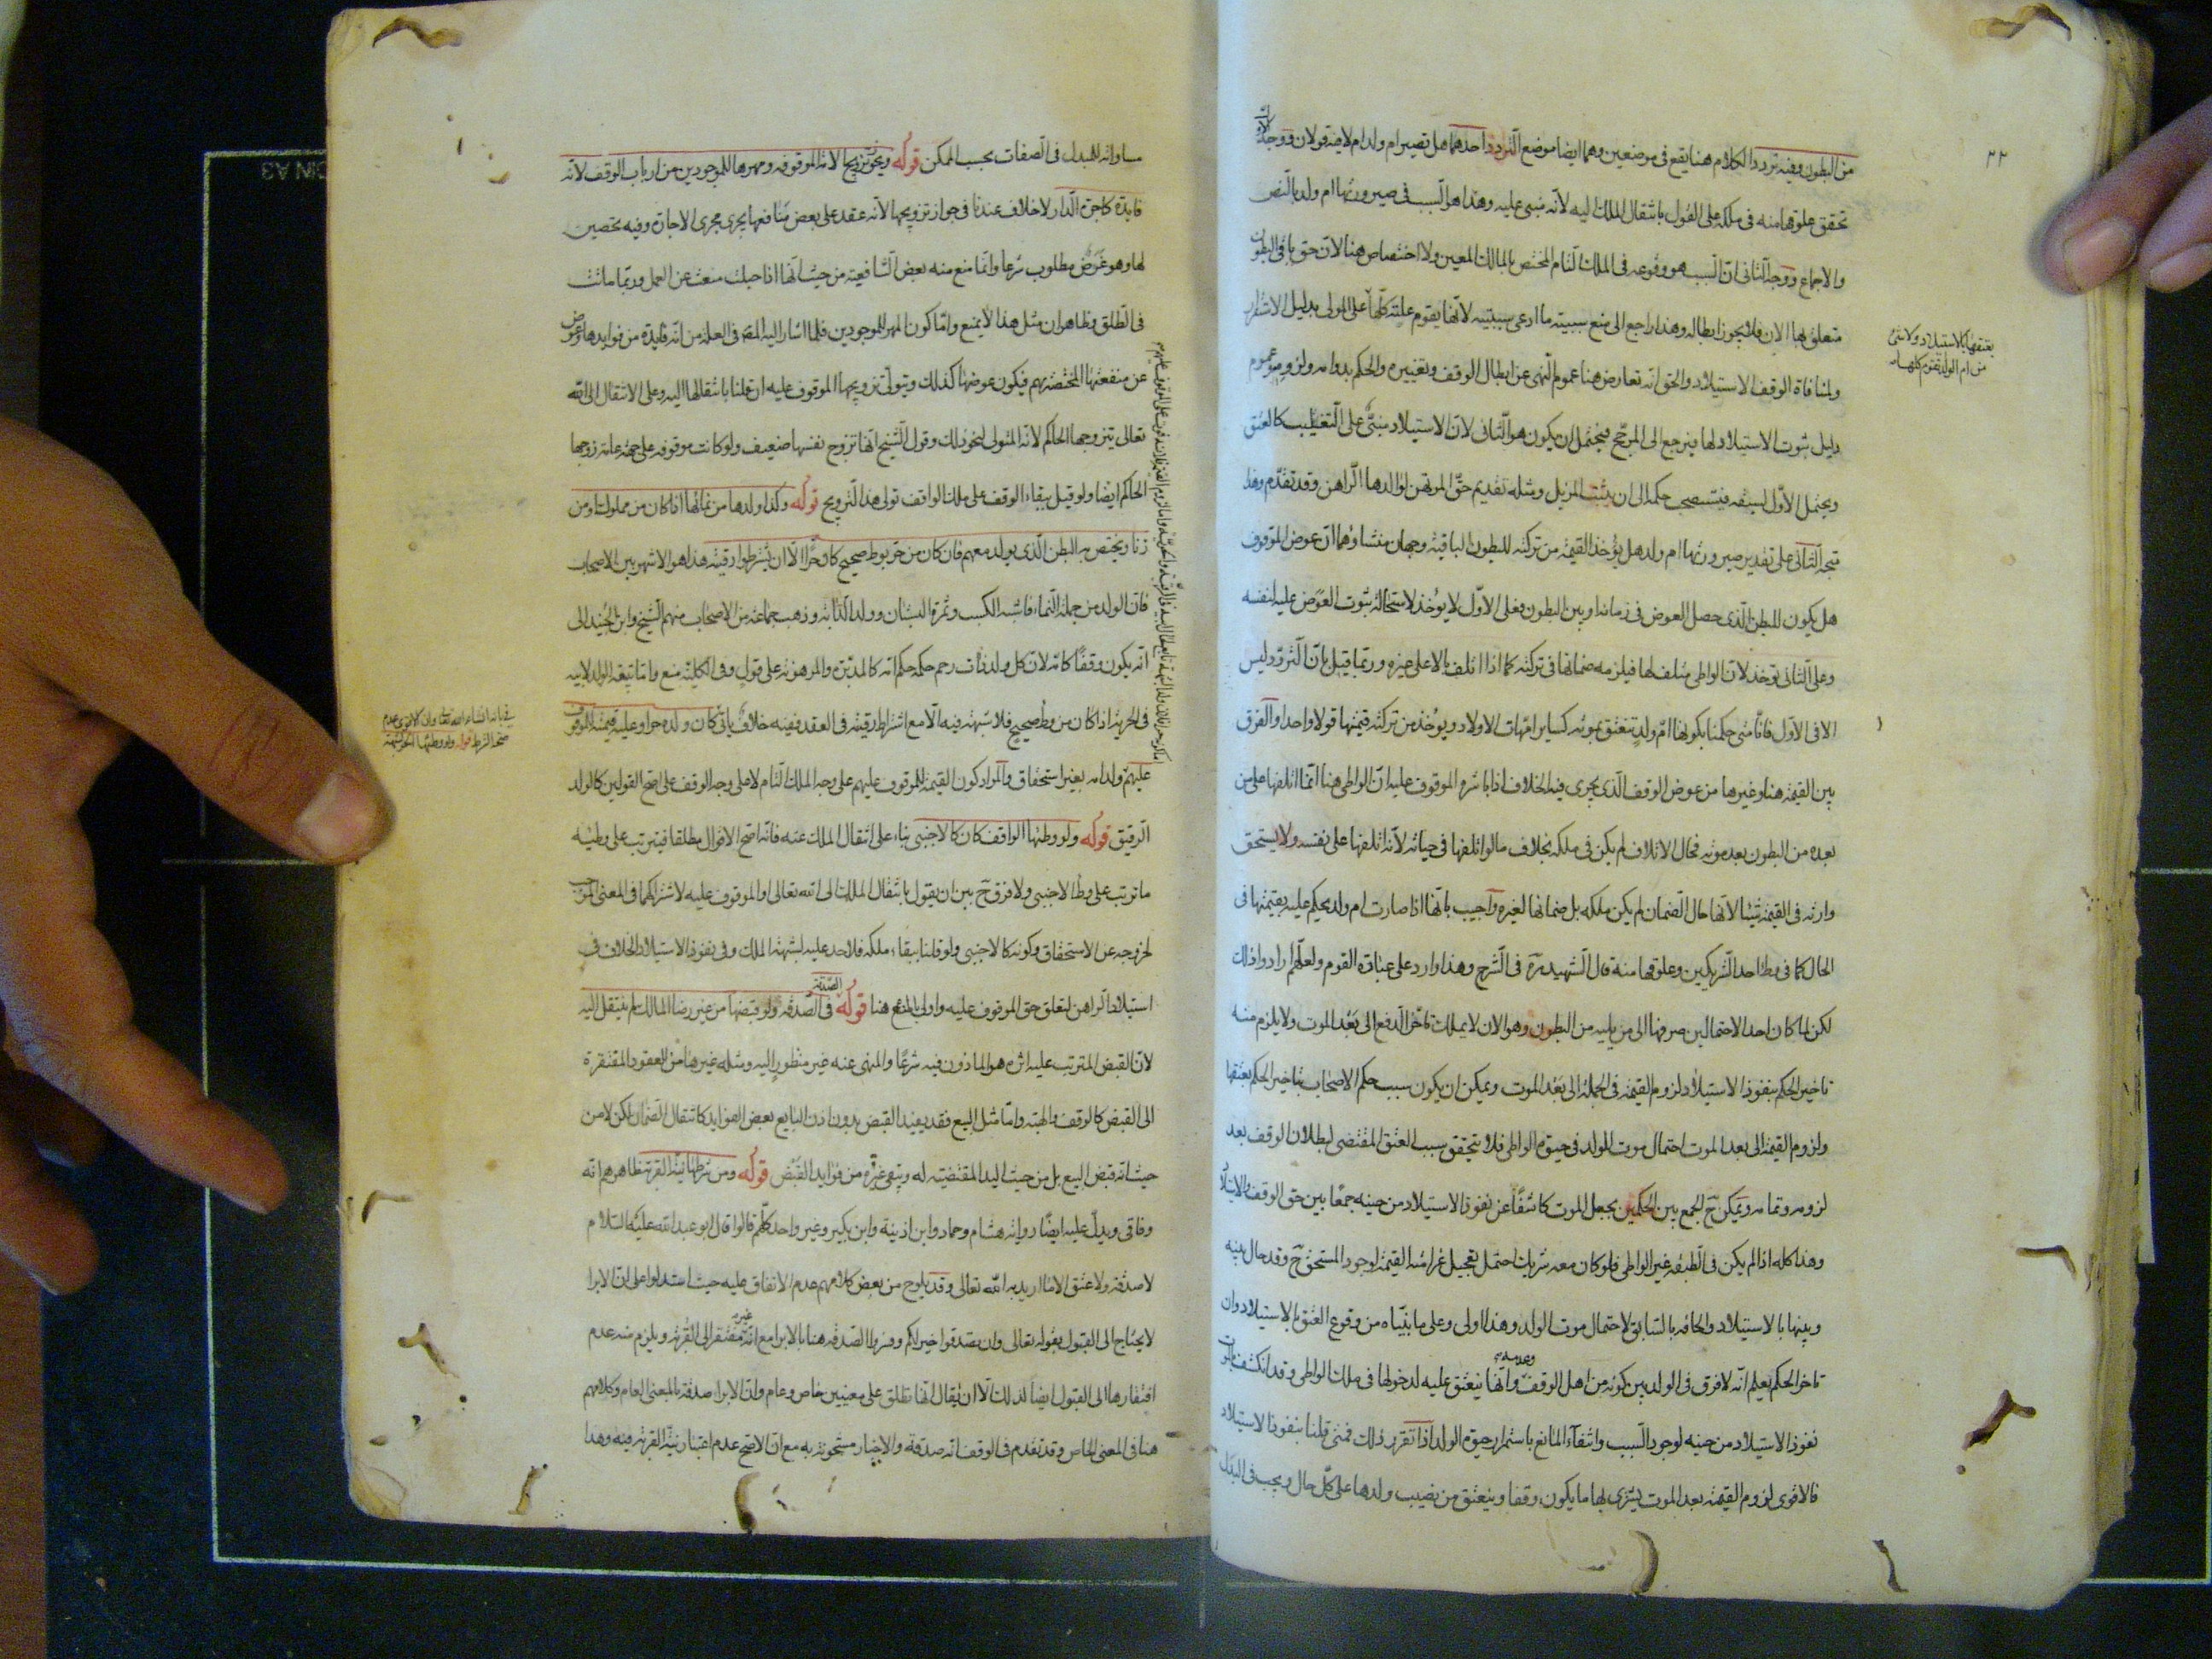 ٢٢
من البطون وفيه تردد الكلام هنا يقع في موضعين وهما ايضا موضع التردد احدهما هل تصير ام ولد ام لا فيه قولان ووجه الاول انه
تحقق علوقها منه في ملكه على القول بانتقال الملك اليه لانه مبني عليه وهذا هو السبب في صيرورتها ام ولد بالنص
والاجماع ووجه الثاني ان السبب هو وقوعه في الملك التام المختص بالمالك المعين ولا اختصاص هنا لان حق باقي البطون
متعلق بها الان فلا يجوز ابطاله وهذا راجع الى منع سببية ما ادعى سببيته لانها يقوم عليه كلها على المولى بدليل الاشتراك
بعتقها بالاستيلاد ولا شيء
من ام الولد تقوم كلها
ولمنافاة الوقف الاستيلاد والحق انه تعارض هنا عموم النهي عن ابطال الوقف وتغييره والحكم بدوامه ولزومه وعموم
دليل ثبوت الاستيلاد لها فيرجع الى المرجح فيحتمل ان يكون هو الثاني لان الاستيلاد مبني على التغليب كالعتق
ويحتمل الاول لسبقه فيستصحب حكمه الى ان يثبت المزيل ومثله تقديم حق المرتهن لو اولدها الراهن وقد تقدم وهذا
متجه الثاني على تقدير صيرورتها ام ولد هل يؤخذ القيمة من تركته للبطون الباقية وجهان منشاؤهما ان عوض الموقوف
هل يكون للبطن الذي حصل العوض في زمانه او بين البطون فعلى الاول لا يؤخذ لاستحالة ثبوت العوض عليه لنفسه
وعلى الثاني تؤخذ لان الواطي متلف لها فيلزمه ضمانها في تركته كما اذا اتلف بالاعلى غيره وربما قيل بان التردد ليس
الا في الاول فانا متى حكمنا بكونها ام ولد تنعتق بموته كساير امهات الاولاد ويؤخذ من تركته قيمتها قولا واحدا والفرق
بين القيمة هنا وغيرها من عوض الوقف الذي يجري فيه الخلاف اذا باشره الموقوف عليه ان الواطي هنا انما اتلفها على من
بعده من البطون بعد موته فحال الاتلاف لم يكن في ملكه بخلاف ما لو اتلفها في حياته لانه اتلفها على نفسه ولا يستحق
وارثه في القيمة شيئا لانها حال الضمان لم يكن ملكه بل ضمانها لغيره واجيب بانها اذا صارت ام ولد يحكم عليه بقيمتها في
الحال كما في وطئ احد الشريكين وعلوقها منه قال الشهيد ره في الشرح وهذا وارد على عبارة القوم ولعلهم ارادوا ذلك
لكن لما كان احد الاحتمالين صرفها الى من يليه من البطون وهو الان لا يملك تاخر الدفع الى بعد الموت ولا يلزم منه
تاخير الحكم بنفوذ الاستيلاد ولزوم القيمة في الجملة الى بعد الموت ويمكن ان يكون سبب حكم الاصحاب بتاخير الحكم بعتقها
ولزوم القيمة الى بعد الموت احتمال موت الولد في حيوة الواطي فلا يتحقق سبب العتق المقتضي لبطلان الوقف بعد
لزومه وتمامه ويمكن ح الجمع بين الحكمين بجعل الموت كاشفا عن نفوذ الاستيلاد من حينه جمعا بين حق الوقف والاستيلاد
وهذا كله اذا لم يكن في الطبقة غير الواطي فلو كان معه شريك احتمل تعجيل غرامة القيمة لوجود المستحق ح وقد حال بينه
وبينها بالاستيلاد والحاقه بالسابق لاحتمال موت الولد وهذا اولى وعلى ما بيناه من وقوع العتق بالاستيلاد وان
تاخر الحكم يعلم انه لا فرق في الولد بين كونه من اهل الوقف وعدمه وانها ينعتق عليه لدخولها في ملك الواطي وقد انكشف بالموت
نفوذ الاستيلاد من حينه لوجود السبب وانتفاء المانع باستمرار حيوة الولد اذا تقرر ذلك فمتى قلنا بنفوذ الاستيلاد
فالاقوى لزوم القيمة بعد الموت يشترى بها ما يكون وقفا وينعتق من نصيب ولدها على كل حال ويجب في البدل
مساواته للمبدل في الصفات بحسب الممكن قوله ويجوز تزويج الامة الموقوفة ومهرها للموجودين من ارباب الوقف لانه
فايدة كاجرة الدار لا خلاف عندنا في جواز تزويجها لانه عقد على بعض منافعها يجري مجرى الاجارة وفيه تحصين
لها وهو غرض مطلوب شرعا وانما منع منه بعض الشافعية من حيث انها اذا حبلت منعت عن العمل وربما ماتت
في الطلق وظاهر ان مثل هذا لا يمنع واما كون المهر للموجودين فلما اشار اليه المص في العلة من انه فايدة من فوايدها وعوض
عن منفعتها المختصة بهم فيكون عوضها كذلك ويتولى تزويجها الموقوف عليه ان قلنا بانتقالها اليه وعلى الانتقال الى الله
تعالى يتزوجها الحاكم لانه المتولى لنحو ذلك وقول الشيخ انها تزوج نفسها ضعيف ولو كانت موقوفة على جهة عامة زوجها
الحاكم ايضا ولو قيل ببقاء الوقف على ملك الواقف تولى هذا التزويج قوله وكذا ولدها من نمائها اذا كان من مملوك او من
زنا ويختص به البطن الذي يولد معهم فان كان من حر بوطء صحيح كان حرا الا ان يشترطوا رقيته هذا هو الاشهر بين الاصحاب
فان الولد من جملة النماء فاشبه الكسب وثمرة البستان وولد الدابة وذهب جماعة من الاصحاب منهم الشيخ وابن الجنيد الى
انه يكون وقفا كامه لان كل ولد ذات رحم حكمه حكم امه كالمدبرة والمرهونة على قول وفي الكلية منع واما تبعية الولد لابيه
في الحرية اذا كان من وطء صحيح فلا شبهة فيه الا مع اشتراط رقيته في العقد ففيه خلاف ياتي كان ولده حرا وعليه قيمته للموقوف
في بابه انشاء الله تعالى وان كان الاقوى عدم
صحة الشرط قوله ولو وطئها الحر بشبهة
عليهم ولد امه بغير استحقاق والمراد كون القيمة للموقوف عليهم على وجه الملك التام لا على وجه الوقف على اصح القولين كالولد
الرقيق قوله ولو وطئها الواقف كان كالاجنبي بناء على انتقال الملك عنه فانه اصح الاقوال مطلقا فيترتب على وطيه
ما ترتب على وطء الاجنبي ولا فرق ح بين ان يقول بانتقال الملك الى الله تعالى او الموقوف عليه لاشتراكهما في المعنى الموجب
لخروجه عن الاستحقاق وكونه كالاجنبي ولو قلنا ببقاء ملكه فلا حد عليه لشبهة الملك وفي نفوذ الاستيلاد الخلاف في
استيلاد الراهن لتعلق حق الموقوف عليه واولى بالمنع هنا قوله في الصدقة ولو قبضها من غير رضا المالك لم ينتقل اليه
لان القبض المترتب عليه اثره هو الماذون فيه شرعا والمنهي عنه غير منظور اليه ومثله غيرها من العقود المفتقرة
الى القبض كالوقف والهبة واما مثل البيع فقد يفيد القبض بدون اذن البايع بعض الفوايد كانتقال الضمان لكن لا من
حيث انه قبض البيع بل من حيث اليد المقتضية له ويبقى غيره من فوايد القبض قوله ومن شرطها نية القربة ظاهرهم انه
وفاقي ويدل عليه ايضا رواية هشام وحماد وابن اذينة وابن بكير وغير واحد كلهم قالوا قال ابو عبد الله عليه السلام
لا صدقة ولا عتق الا ما اريد به الله تعالى وقد يلوح من بعض كلامهم عدم الاتفاق عليه حيث استدلوا على ان الابرا
لا يحتاج الى القبول بقوله تعالى وان تصدقوا خير لكم وفسروا الصدقة هنا بالابرا مع انه غير مفتقر الى القربة ويلزم منه عدم
افتقارها الى القبول ايضا لذلك الا ان يقال انها تطلق على معنيين خاص وعام وان الابراء صدقة بالمعنى العام وكلامهم
هنا في المعنى الخاص وقد تقدم في الوقف انه صدقة والاخبار مشحونة به مع ان الاصح عدم اعتبار نية القربة فيه وهذا